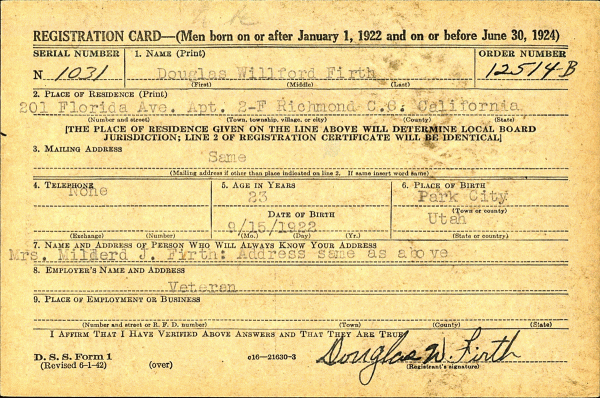 REGISTRATION CARD—(Men born on or after January 1, 1922 and on or before June 30, 1924)
SERIAL NUMBER 1. NAME (Print) ORDER NUMBER
N 1031 Douglas Willford Firth 12514-B
(First) (Middle) (Last)
2. PLACE OF RESIDENCE (Print)
201 Florida Ave. Apt. 2-F Richmond C.C. California
(Number and street) (Town, township, village, or city) (County) (State)
[THE PLACE OF RESIDENCE GIVEN ON THE LINE ABOVE WILL DETERMINE LOCAL BOARD
JURISDICTION; LINE 2 OF REGISTRATION CERTIFICATE WILL BE IDENTICAL]
3. MAILING ADDRESS
Same
(Mailing address if other than place indicated on line 2. If same insert word same)
4. TELEPHONE 5. AGE IN YEARS 6. PLACE OF BIRTH
None 23 Park City
(Town or county)
DATE OF BIRTH Utah
9/15/1922
(Exchange) (Number) (Mo.) (Day) (Yr.) (State or country)
7. NAME AND ADDRESS OF PERSON WHO WILL ALWAYS KNOW YOUR ADDRESS
Mrs. Milderd J. Firth: Address same as above
8. EMPLOYER'S NAME AND ADDRESS
Veteran
9. PLACE OF EMPLOYMENT OR BUSINESS
(Number and street or R. F. D. number) (Town) (County) (State)
I AFFIRM THAT I HAVE VERIFIED ABOVE ANSWERS AND THAT THEY ARE TRUE
D. S. S. Form 1 c16—21630-3 Douglas W. Firth
(Revised 6-1-42) (over) (Registrant's signature)